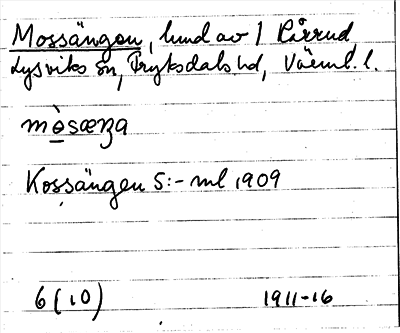 Mossängen, hmd av 1 Rårud
Lysviks sn, Fryksdals hd, Värml. l.
mòsæŋa
Kossängen S:- ml 1909
6 (10) 1911-16